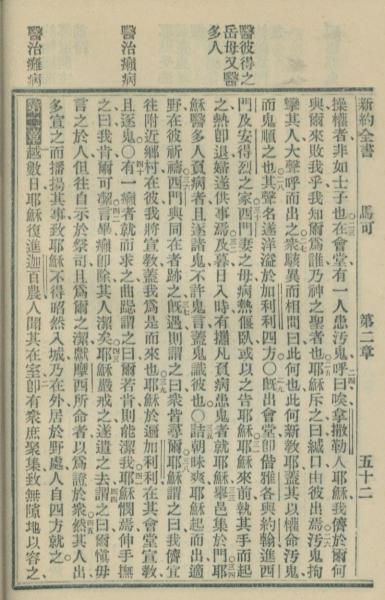 新約全書 馬可 第二章 五十二
醫彼得之
岳母又醫
多人
醫治癩病
醫治癱病
操權者非如士子也在會堂有一人患汚鬼呼曰唉拿撒勒人耶穌我儕於爾何
與爾來敗我乎我知爾爲誰乃神之聖者也耶穌斥之曰緘口由彼出焉汚鬼拘
攣其人大聲呼而出之衆駭異而相問曰此何也此何新敎耶蓋其以權命汚鬼
而鬼順之也其聲名遂洋溢於加利利四方〇旣出會堂卽偕雅各與約翰進西
門及安得烈之家西門妻之母病熱偃臥或以之告耶穌耶穌來前執其手而起
之熱卽退婦遂供事焉及暮日入時有攜凡負病患鬼者就耶穌舉邑集於門耶
穌醫多人負病者且逐諸鬼不許鬼言蓋鬼識彼也〇詰朝昧爽耶穌起而出適
野在彼祈禱西門與同在者跡之旣遇則謂之曰衆皆尋爾耶穌謂之曰我儕宜
往附近鄕村在彼我將宣敎蓋我爲是而來也耶穌於遍加利利在其會堂宣敎
且逐鬼〇有一癩者就而求之曲跽謂之曰爾若肯則能潔我耶穌憫焉伸手撫
之曰我肯爾可潔言畢癩卽除其人潔矣耶穌嚴戒之遂遣之去謂之曰爾愼毋
言之於人但往自示於祭司且爲爾之潔獻摩西所命者以爲證於衆然其人出
多宣之而播揚其事致耶穌不得昭然入城乃在外居於野處人自四方就之
第二章越數日耶穌復進迦百農人聞其在室卽有衆庶聚集致無隙地以容之